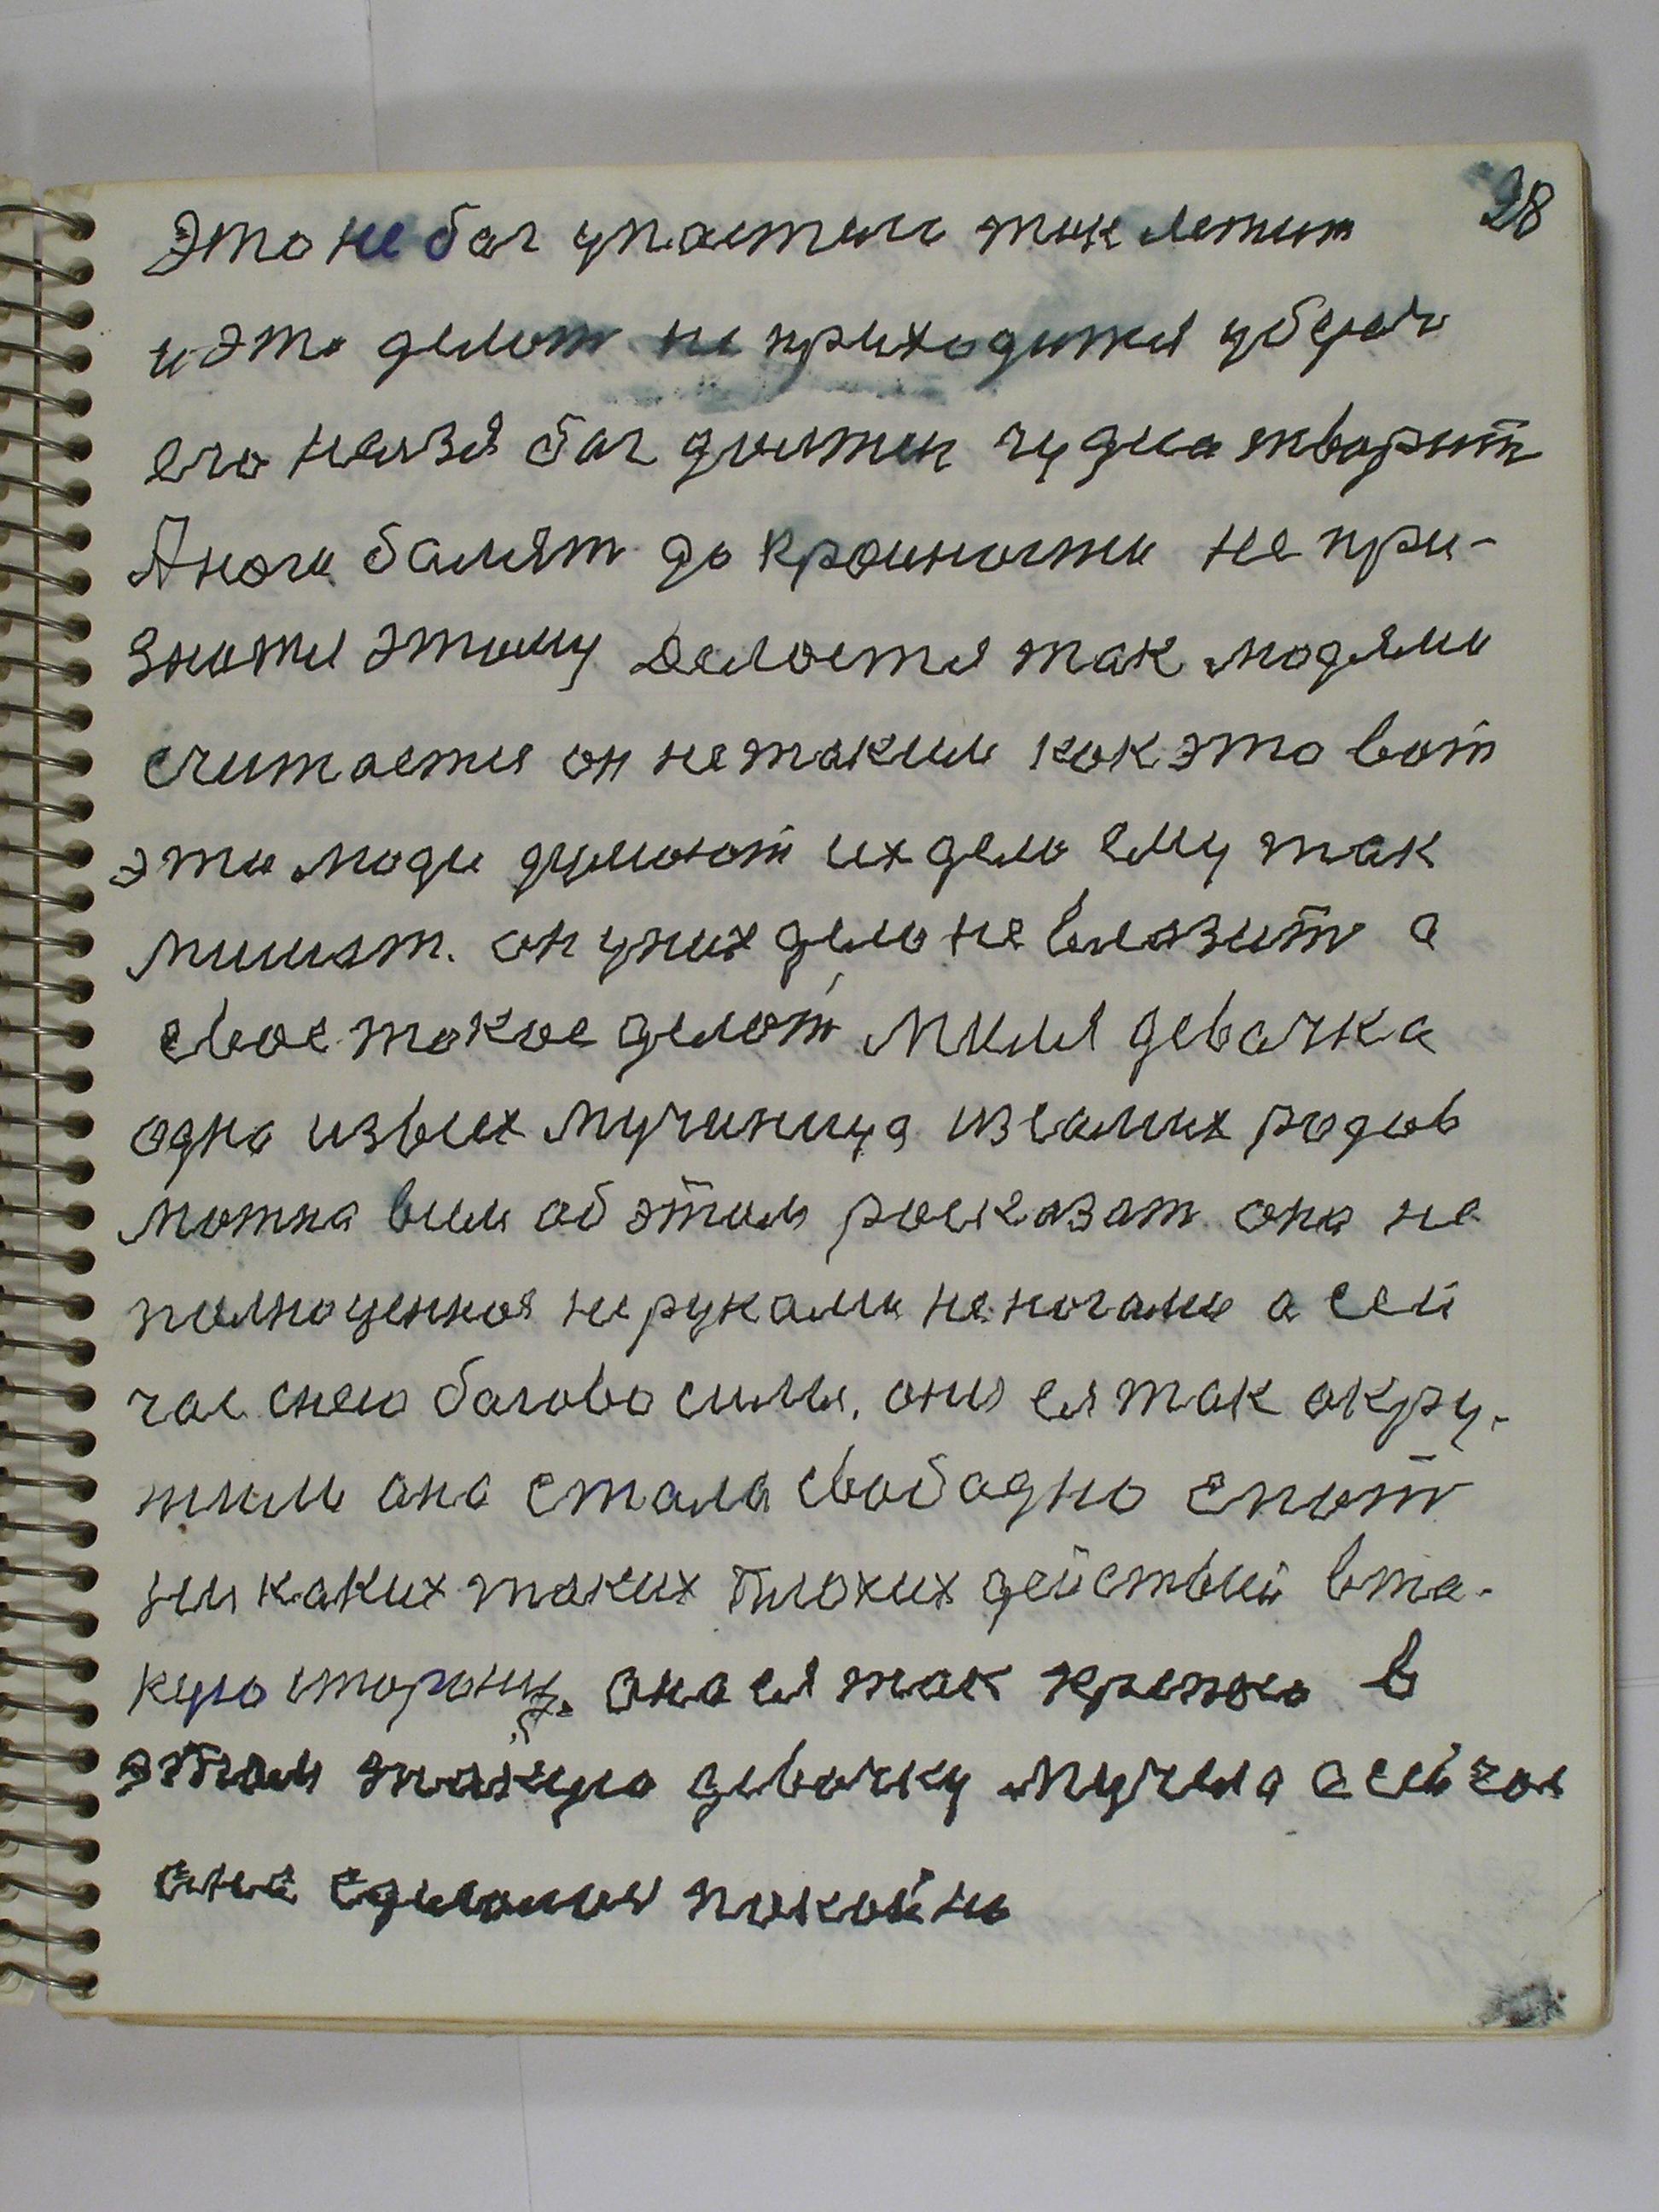 28
Это не бог упастели так летит
и это делат не приходится уберат
его нелзя бог долтен чудна творит
А ноги балят до краиности не при-
знатся этому Делоется так людями
считаетшя он не таким как это вот
эти люди думают их дело ему так
лишат. он у них дело не влазит а
свое такое делат Миля девачка
одна из вых мученица из самих родов
мотна вим об этим росказат она не
полноценноя не руками не ногами а сей
час с нею богова силы. они ея так окру-
тили она стала свободно спат
ни каких таких плохих действий в та-
кую сторону. Она ея так крепко в
этом такую девочку мучела а сейчас
она сделолоя покойны